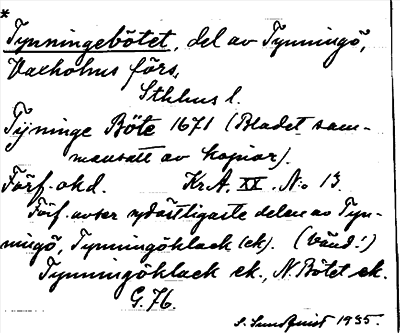 *
Tynningebötet, del av Tynningö,
Vaxholms förs,
Sthlms l.
Tÿninge Böte 1671 (Bladet sam-
mansatt av kopior).
Förf. okd. Kr.A. XX. N:o 13.
Förf. avser sydöstligaste delen av Tyn-
ningö, Tynningöklack (ek). (vänd!)
Tynningöklack ek., N. Bötet ek.
G. 76.
S. Sundquist 1935.